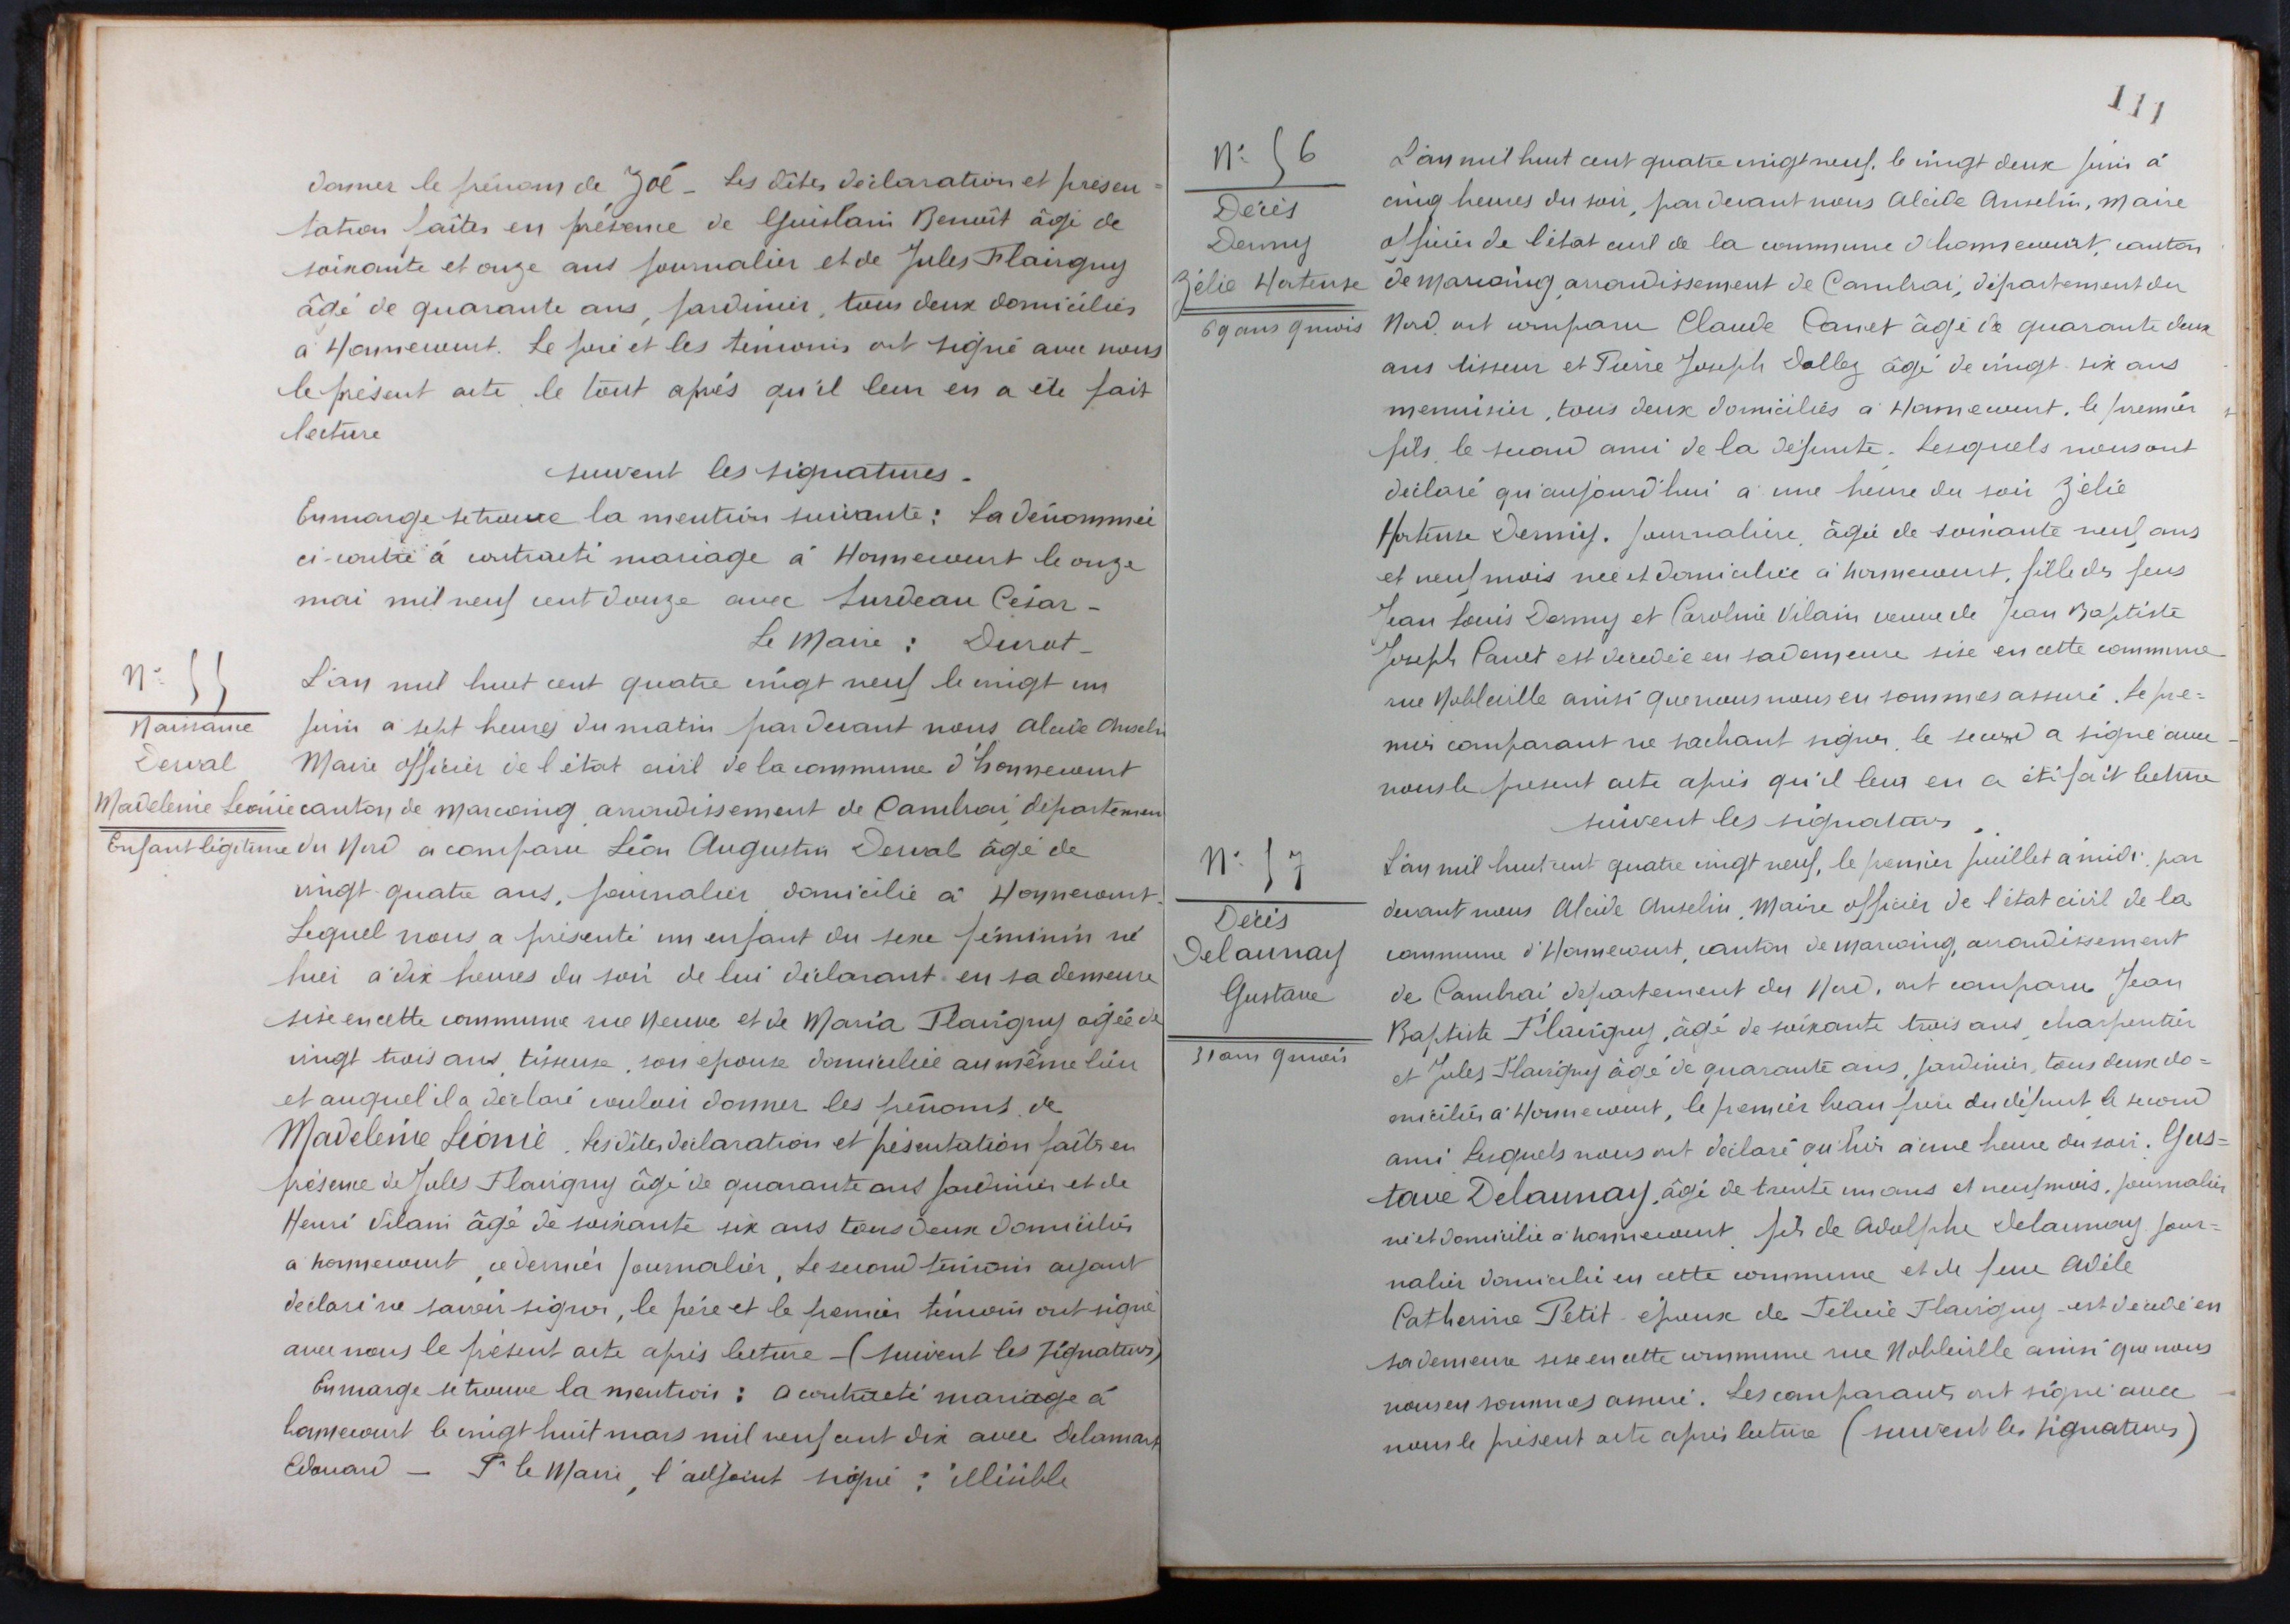 donner le prénom de Zoé - Les dites déclaration et présen=
tation faites en présence de Guislain Benoît âgé de
soixante et onze ans journalier et de Jules Flavigny
âgé de quarante ans, jardinier, tous deux domiciliés
à Honnecourt. Le père et les témoins ont signé avec nous
le présent acte le tout après qu'il leur en a été fait
lecture
suivent les signatures.
En marge se trouve la mention suivante : La dénommée
ci-contre à contracté mariage à Honnecourt le onze
mai mil neuf cent douze avec Surdeau César -
Le Maire : Durot -
N° 55
Naissance
Derval
Madeleine Léonie
Enfant légitime
L'an mil huit cent quatre vingt neuf le vingt un
juin à sept heures du matin par devant nous Alcide Anselin
Maire officier de l'état civil de la commune d'honnecourt
canton de Marcoing arrondissement de Cambrai, départemen
du Nord a comparu Léon Augustin Derval âgé de
vingt quatre ans, journalier domicilié à Honnecourt.
Lequel nous a présenté un enfant du sexe féminin né
hier à dix heures du soir de lui déclarant en sa demeure
sise en cette commune rue Neuve et de Maria Flavigny agée de
vingt trois ans, tisseuse, son epouse domiciliée au même lieu
et auquel il a déclaré vouloir donner les prénoms de
Madeleine Léonie. Les dites déclaration et présentation faites en
présence de Jules Flavigny âgé de quarante ans jardinier et de
Henri Vilain âgé de soixante six ans tous deux domiciliés
a honnecourt, ce dernier journalier, Le second témoin ayant
déclaré ne savoir signer, le père et le premier témoin ont signé
avec nous le présent acte après lecture - (suivent les signatures)
En marge se trouve la mention : a contracté mariage à
honnecourt le vingt huit mars mil neuf cent dix avec Delamart
Edouard - Pr le Maire, l'adjoint signé : illisible
111
N° 56
Décès
Denny
Zélie Hortense
69 ans 9 mois
L'an mil huit cent quatre vingt neuf, le vingt deux juin à
cinq heures du soir, par devant nous Alcide Anselin, Maire
officier de l'état civil de la commune d'honnecourt, canton
de Marcoing, arrondissement de Cambrai, département du
Nord, ont comparu Claude Canet âgé de quarante deux
ans tisseur et Pierre Joseph Dollez âgé de vingt six ans
menuisier, tous deux domiciliés à Honnecourt. le premier
fils, le second ami de la défunte. Lesquels nous ont
déclaré qu'aujourd'hui à une heure du soir Zélie
Hortense Denny. Journalière, âgée de soixante neuf ans
et neuf mois née et domiciliée à honnecourt, fille des feus
Jean Louis Denny et Caroline Vilain veuve de Jean Baptiste
Joseph Canet est décédée en sa demeure sise en cette commune
rue Nobleville ainsi que nous nous en sommes assuré. Le pre=
mier comparant ne sachant signer, le second a signé avec
nous le présent acte après qu'il leur en a été fait lecture
suivent les signatures
N° 57
Décès
Delaunay
Gustave
31 ans 9 mois
L'an mil huit cent quatre vingt neuf, le premier juillet à midi par
devant nous Alcide Anselin, Maire officier de l'état civil de la
commune d'Honnecourt, canton de Marcoing, arrondissement
de Cambrai département du Nord, ont comparu Jean
Baptiste Flavigny, âgé de soixante trois ans, charpentier
et Jules Flavigny âgé de quarante ans, jardinier, tous deux do=
miciliés à Honnecourt, le premier beau frère du défunt le second
ami Lesquels nous ont déclaré qu'hier à une heure du soir. Gus=
tave Delaunay, âgé de trente un ans et neuf mois, journalier
né et domicilié à honnecourt fils de Adolphe Delaunay jour=
nalier domicilié en cette commune et de feue Adèle
Catherine Petit - époux de Félicie Flavigny - est décédé en
sa demeure sise en cette commune rue Nobleville ainsi que nous
nous en sommes assuré. Les comparants ont signé avec
nous le présent acte après lecture (suivent les signatures)